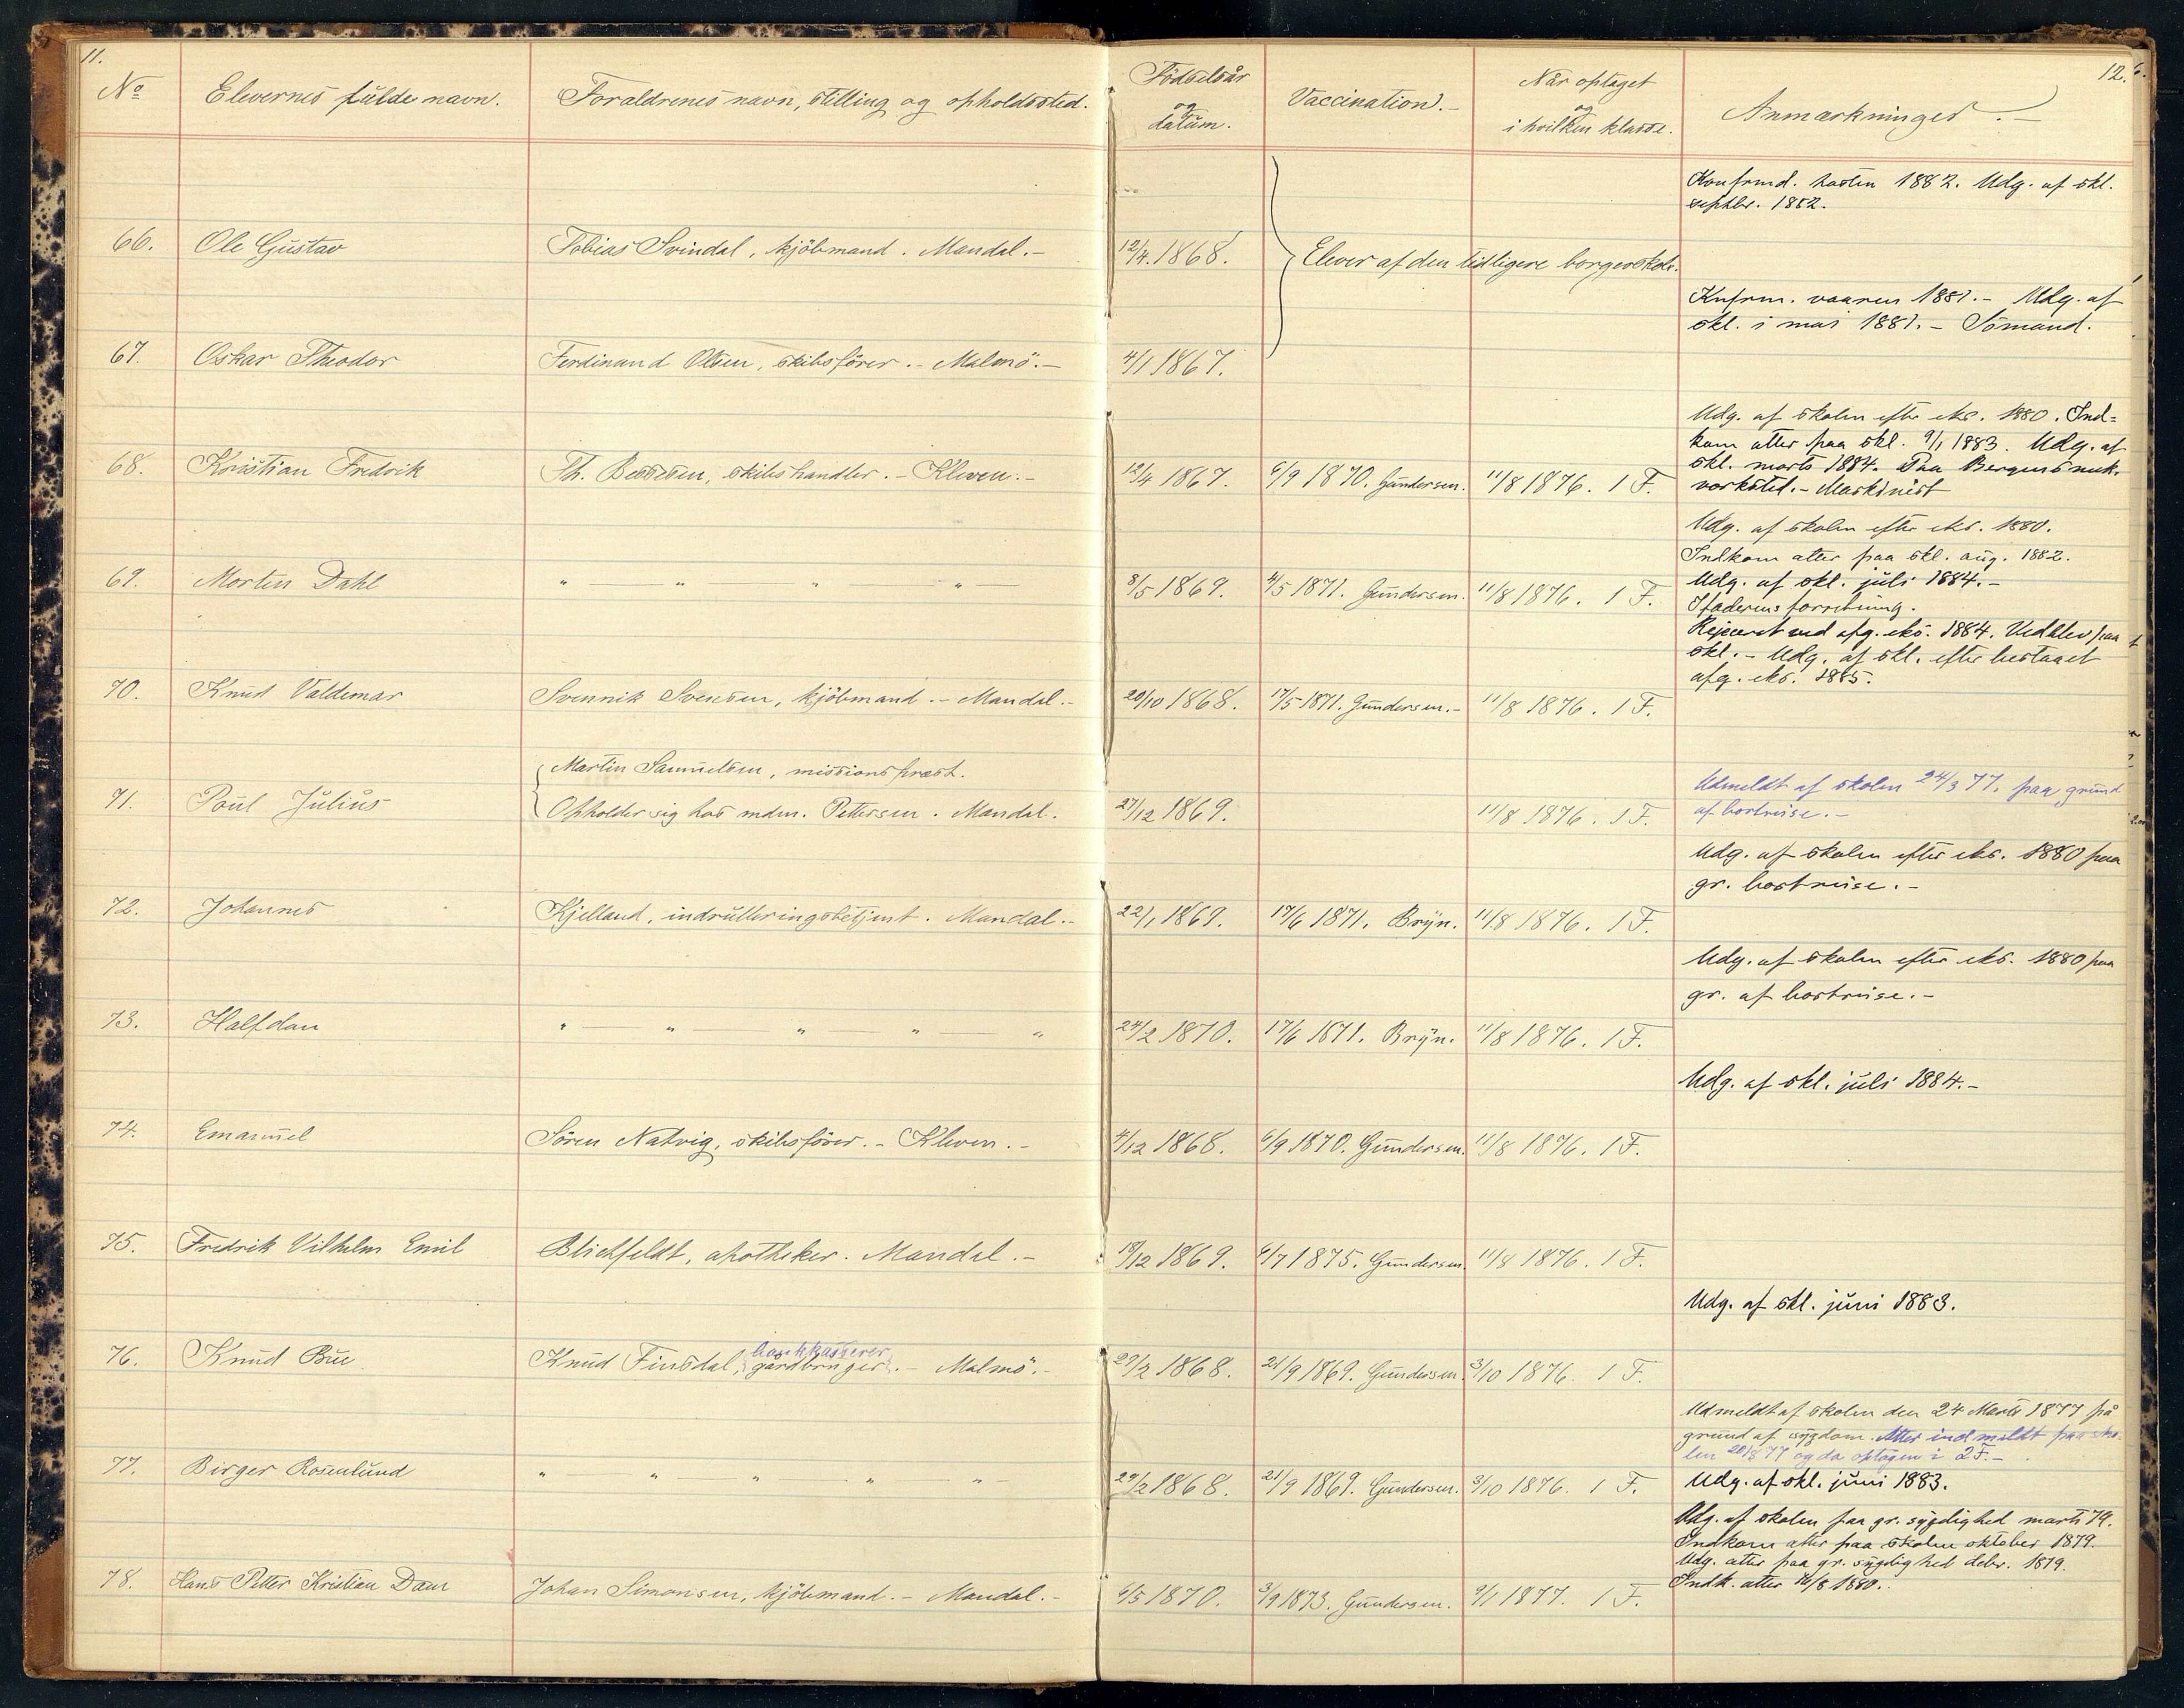 11.
12.
No Elevernes fulde navn. Forældrenes navn, stilling og opholdssted. Födselsår og datum. Vaccination. Når optaget og i hvilken klasse. Anmærkninger.
Konfrmd. høsten 1882. Udg. af skl.
septbr. 1882.
66. Ole Gustav Tobias Svindal, kjöbmand. Mandal. 12/4. 1868. Elever af den tidligere borgerskole.
Knfrm. vaaren 1881. Udg. af
skl. i mai 1881. Sömand.
67. Oskar Theodor Ferdinand Olsen, skibsförer. Malmö. 4/1 1867.
Udg. af skolen efter eks. 1880. Ind-
kom atter paa skl. 9/1 1883. Udg. af
skl. marts 1884. Paa Bergens mek.
verksted. Maskinist
68. Kristian Fredrik Th. Bessesen, skibshandler. Kleven. 12/4 1867. 6/9 1870. Gundersen. 11/8 1876. 1 F.
Udg. af skolen efter eks. 1880.
Indkom atter paa skl. aug. 1882.
Udg. af skl. juli 1884.
I faderens forretning.
69. Morten Dahl " " " " 8/5 1869. 4/5 1871. Gundersen. 11/8 1876. 1 F.
Rejiceret ved afg. eks. 1884. Vedblev paa
skl. Udg. af skl. efter bestaaet
afg. eks. 1885.
70. Knud Valdemar Svennik Svensen, kjöbmand. Mandal. 20/10 1868. 17/5 1871. Gundersen. 11/8 1876. 1 F.
Martin Samuelsen, missionsprest.
71. Poul Julius Opholder sig hos mdm. Pettersen. Mandal. 27/12 1869. 11/8 1876. 1 F.
Udmeldt af skolen 24/3 77. paa grund
af bortreise.
Udg. af skolen efter eks. 1880 paa
gr. bortreise.
72. Johannes Kjelland, indrulleringsbetjent. Mandal. 22/1 1869. 17/6 1871. Bryn. 11/8 1876. 1 F.
Udg. af skolen efter eks. 1880 paa
gr. af bortreise.
73. Halfdan " " " " " 24/2 1870. 17/6 1871. Bryn. 11/8 1876. 1 F.
Udg. af skl. juli 1884.
74. Emanuel Sören Natvig, skibsförer. Kleven. 4/12 1868. 6/9 1870. Gundersen. 11/8 1876. 1 F.
75. Fredrik Vilhelm Emil Blichfeldt, apotheker. Mandal. 18/12 1869. 6/7 1875. Gundersen. 11/8 1876. 1 F.
Udg. af skl. juni 1883.
bankkasserer
76. Knud Bue Knud Finsdal, gårdbruger. Malmö. 29/2 1868. 21/9 1869. Gundersen. 3/10 1876. 1 F.
Udmeldt af skolen den 24 Marts 1877 på
grund af sygdom. Atter indmeldt paa sko-
len 20/8 77 og da optagen i 2 F.
77. Birger Rosenlund " " " " " 29/2 1868. 21/9 1869. Gundersen. 3/10 1876. 1 F. Udg. af skl. juni 1883.
Udg. af skolen paa gr. sygelighed marts 79.
Indkom atter paa skolen oktober 1879.
Udg. atter paa gr. sygelighed debr. 1879.
Indk. atter 16/8 1880.
78. Hans Petter Kristian Dam Johan Simonsen, kjöbmand. Mandal. 6/5 1870. 3/9 1873. Gundersen. 9/1 1877. 1 F.